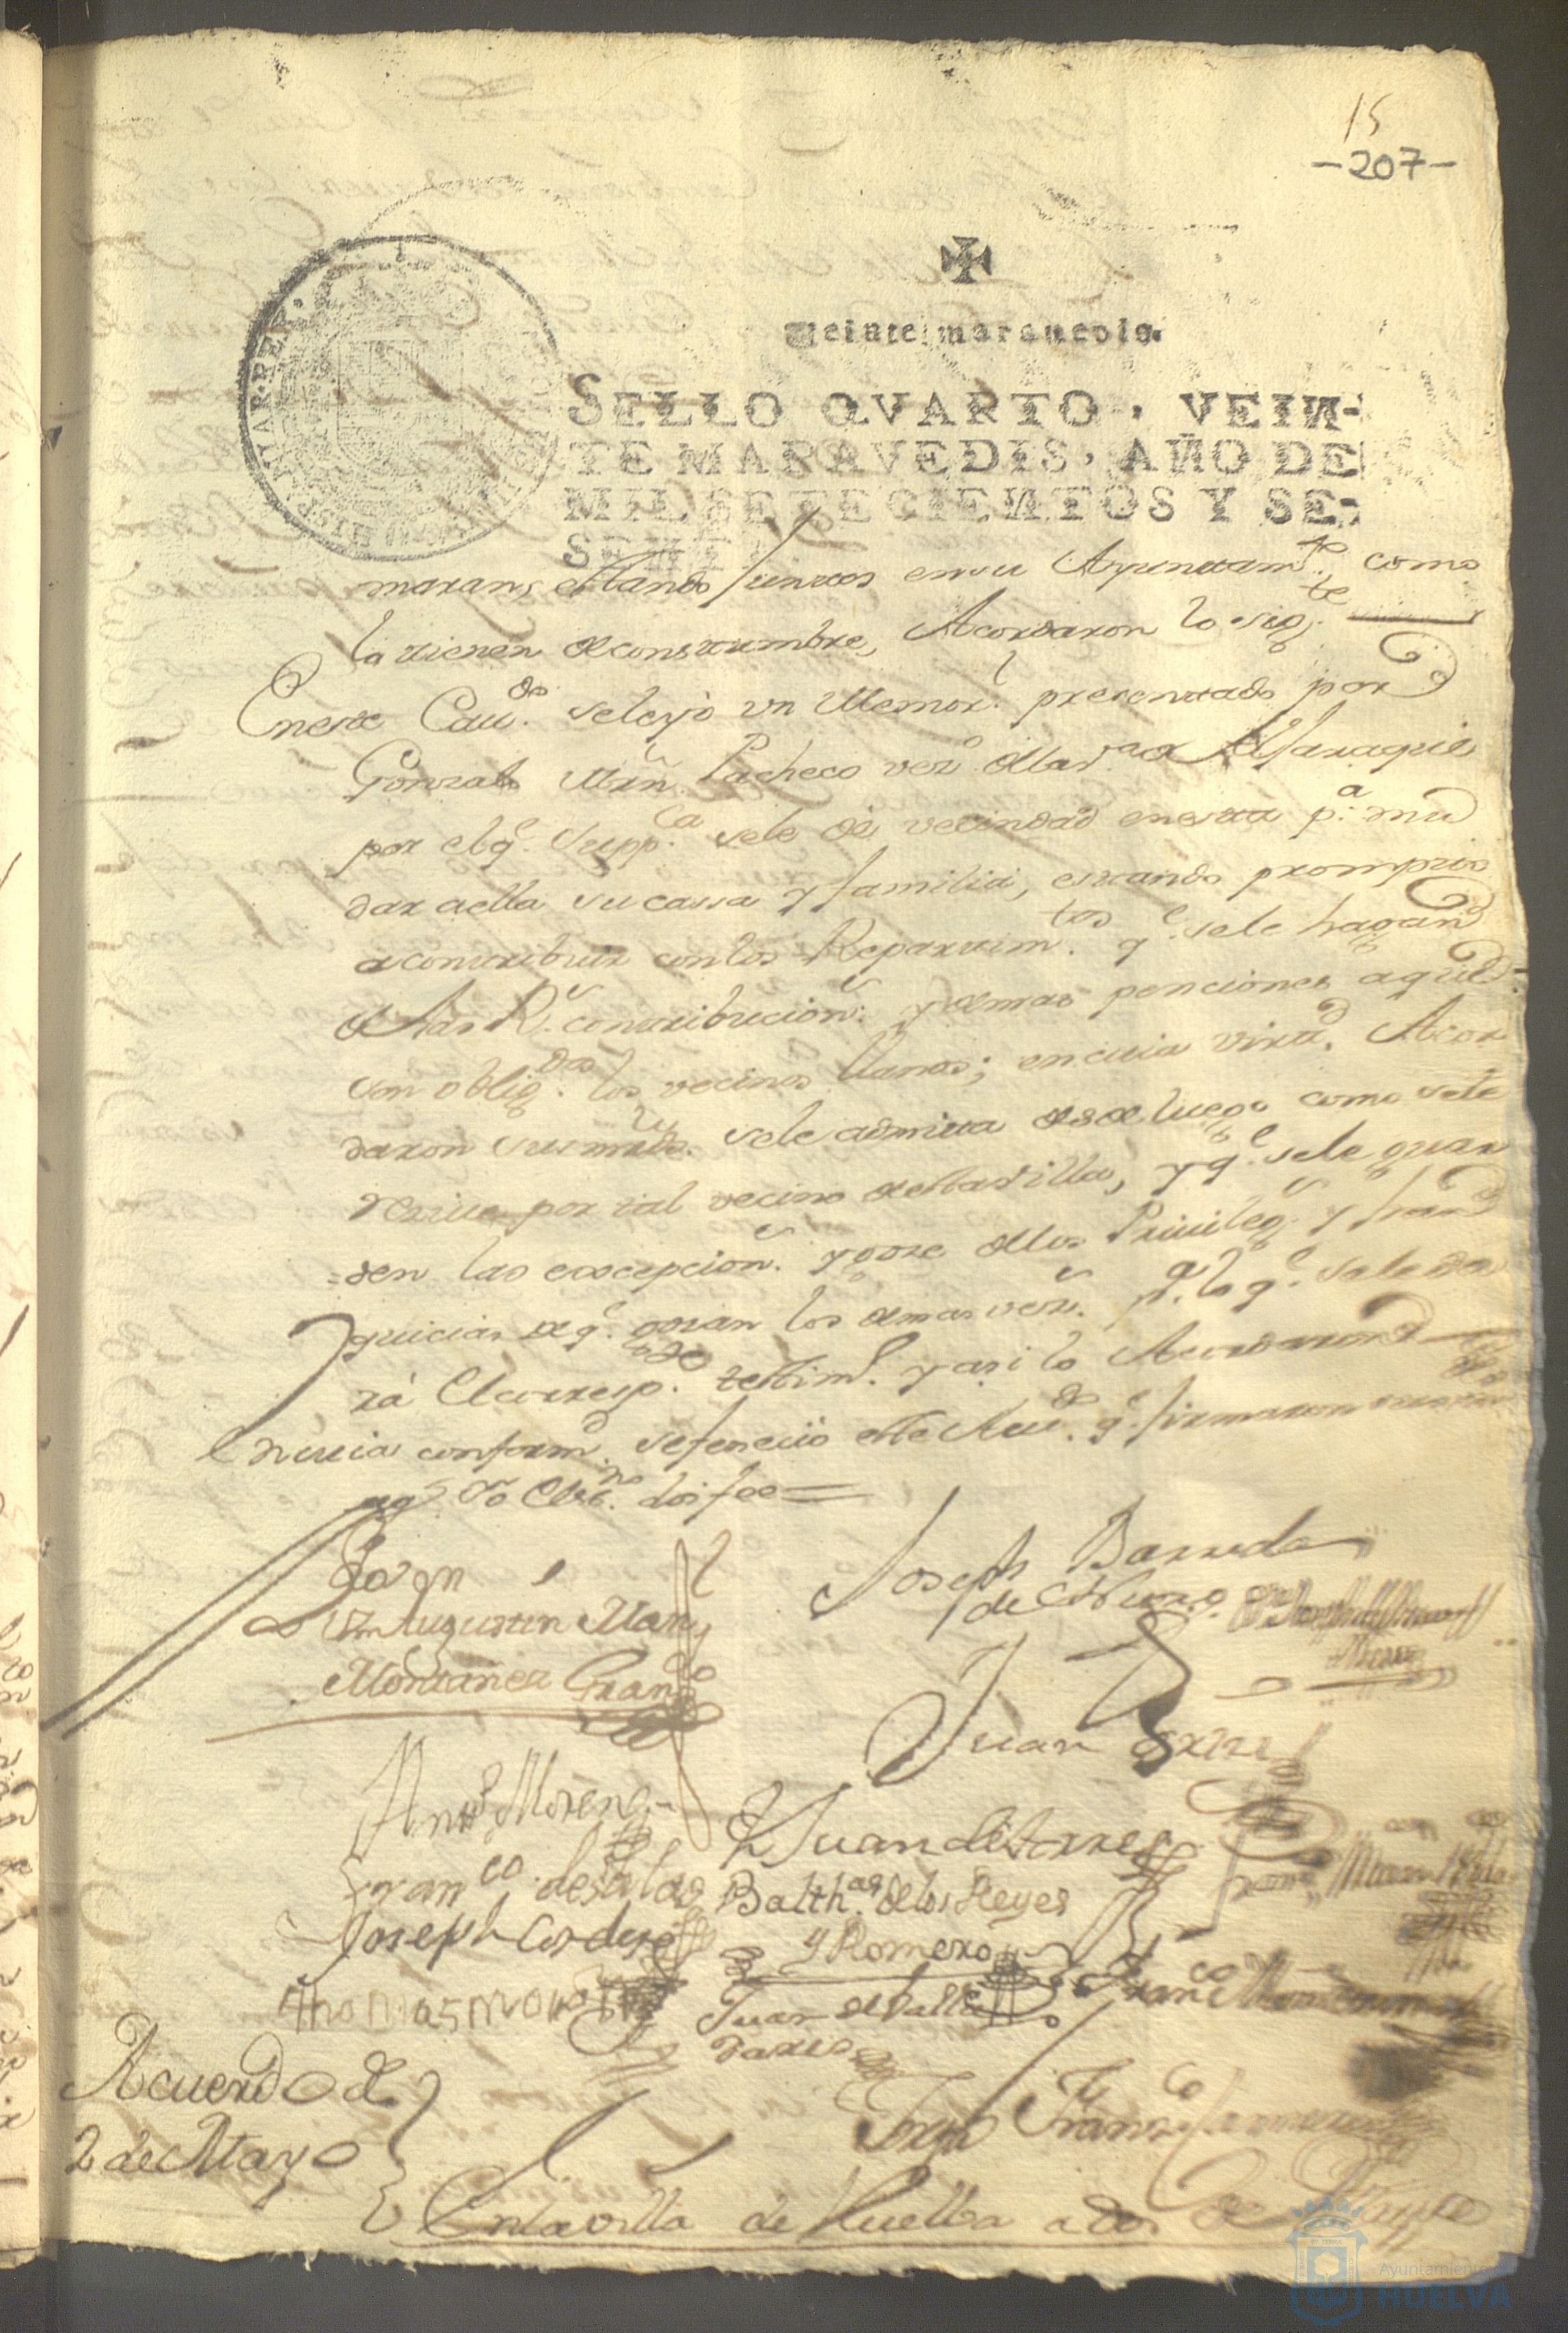 15
-207-
Veinte maravedis.
SELLO QVARTO, VEIN-
TE MARAVEDIS, AÑO DE
MIL SETECIENTOS Y SE-
HISP
maran, estando Juntos en su Ayuntamto. como
lo tienen de constumbre, Acordaron lo sigte.
En este Caudo. se leyò vn Memorl. presentado por
Gonzalo Mrn. Pacheco vezo. de la va. de Aljaraque
por el qe. suppca. se le dè vecindad en esta pa. mu
dar a ella su cassa y familia, estando prompto
a contribuir con los Repartimtos. qe. se le hagan
de las Rs. contribucions. y demas penciones a que
son obligdos. los vecinos llanos; en cuia vista. Acor
daron sus mrds. se le admita desde luego como se le
admite por tal vecino de esta Villa, y qe. se le guar
den las excepcions. y goze de los Privilegs. y fran
quicias de qe. gozan los demas vezs. pa. lo qe. se le da
rá el corresp.te testimo. y asi lo Acordaron
En cuia conformd. se feneciò este Audo. qe. firmaron
Yo el Essno. doi fee =
Agustin Mar
Montaner Grando
Joseph Barreda
Juan
Anto Moreno
Juan de Torres
Franco. de
Balthar. de los Reyes
y Romero
Joseph Cordero
Thomas
Juan de Valle
Franco
Acuerdo de
2 de Mayo
En la villa de Huelba a dos de
Ayuntamiento
HUELVA